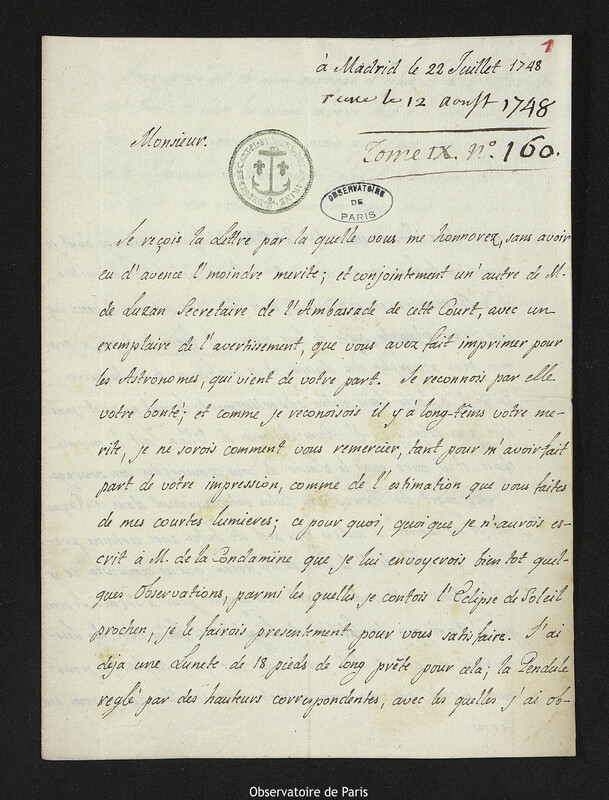 1
à Madrid le 22 Juillet 1748
le 12 aoust 1748
Tome IX. N.º 160.
Monsieur.
OBSERVATOIRE
DE
PARIS
Je reçois la lettre par la quelle vous me honnorez, sans avoir
eu d'avence l'moindre merite; et conjointement un'autre de M.
de Luzan Secretaire de l'Ambassade de cette Court, avec un
exemplaire de l'avertissement, que vous avez fait imprimer pour
les Astronomes, qui vient de votre part. Je reconnois par elle
votre bonté; et comme je reconoisois il y'à long-têms votre me-
rite, je ne sorois comment vous remercier, tant pour m'avoir fait
part de votre impression, comme de l'estimation que vous faites
de mes courtes lumieres; ce pour quoi, quoi que je n'aurois es-
crit à M. de la Condamine que je lui envoyerois bien tot quel-
ques Observations, parmi les quelles je contois l'Eclipse de Soleil
prochen, je le fairois presentement pour vous satisfaire. J'ai
deja une Lunete de 18 pieds de long prête pour cela; la Pendule
reglé par des hauteurs correspondentes, avec les quelles j'ai ob-
Observatoire de Paris